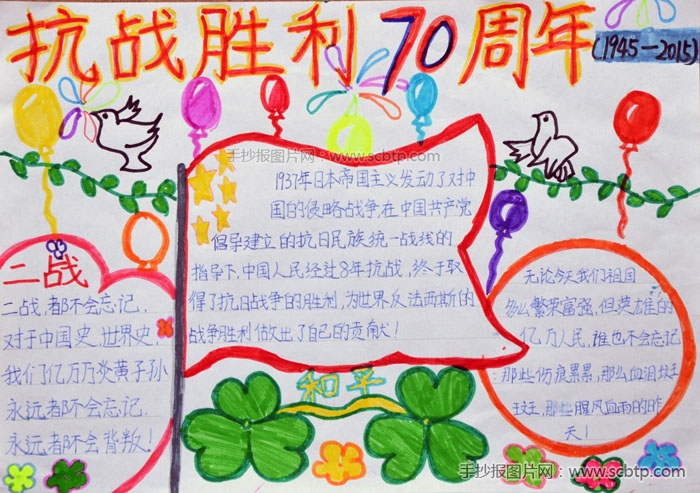 抗战胜利70周年
(1945-2015)
手抄报图片网：www.scbtp.com
1937年日本帝国主义发动了对中
国的侵略战争,在中国共产党
倡导建立的抗日民族统一战线的
指导下,中国人民经过8年抗战,终于取
得了抗日战争的胜利,为世界反法西斯的
战争胜利做出了自己的贡献!
二战
二战,都不会忘记,
对于中国史,世界史,
我们亿万万炎黄子孙
永远者都不会忘记,
永远者都不会背叛!
无论今天我们祖国
多么繁荣富强,但英雄的
亿万人民,谁也不会忘记
那些伤痕累累,那么血泪
那些腥风血雨的昨
天!
和平
手抄报图片网：www.scbtp.com